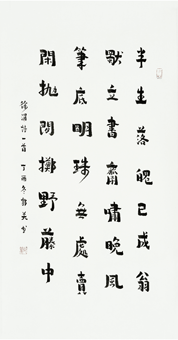 半生落魄已成翁
獨立書齋嘯晚風
筆底明珠無處賣
閑拋閑擲野藤中
徐渭詩一首 丁酉冬